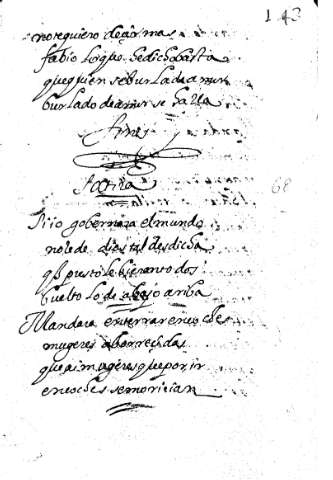 143
no te quiero decir mas
fabio lo que he dicho basta
que quien se burla de amor
burlado de amor se halla
fin
Satira
68
Si io gobernara el mundo
no le de dies tal desdicha
que puesto le bieran todos
buelto lo de abajo ariba
Mandara enterrar en coches
mugeres aborrecidas
que ai mugeres que por ir
en coches se moririan